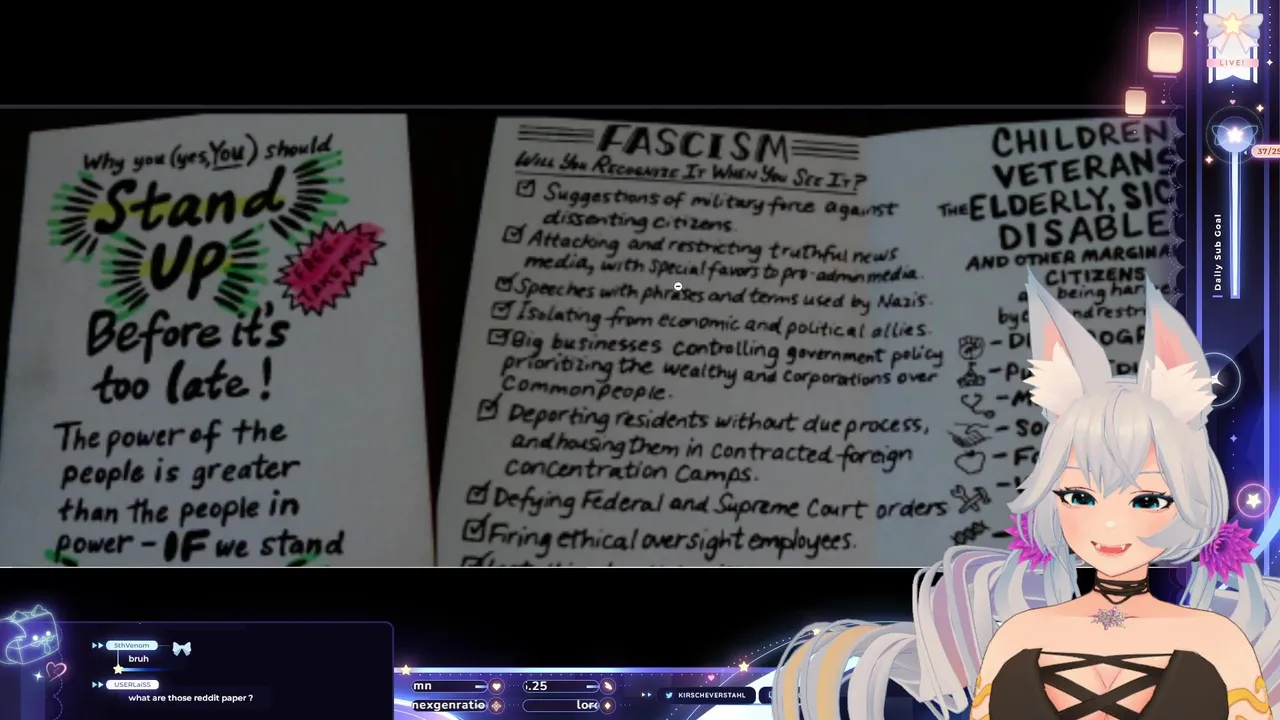 Why you (yes, You) should
Stand
Up
Before it's
too late!
The power of the
people is greater
than the people in
power - IF we stand
FASCISM
Will You Recognize It When You See It?
Suggestions of military force against
dissenting citizens.
Attacking and restricting truthful news
media, with special favors to pro-admin media.
Speeches with phrases and terms used by Nazis.
Isolating from economic and political allies.
Big businesses controlling government policy
prioritizing the wealthy and corporations over
common people.
Deporting residents without due process,
and housing them in contracted foreign
concentration camps.
Defying Federal and Supreme Court orders
Firing ethical oversight employees.
CHILDREN
VETERANS
THE ELDERLY, SIC
DISABLE
AND OTHER MARGINA
CITIZENS
being har
by
LIVE!
37/25
Daily Sub Goal
5thVenom
bruh
USERLaiSS
what are those reddit paper ?
mn
nexgenratio
.25
lor
KIRSCHEVERSTAHL